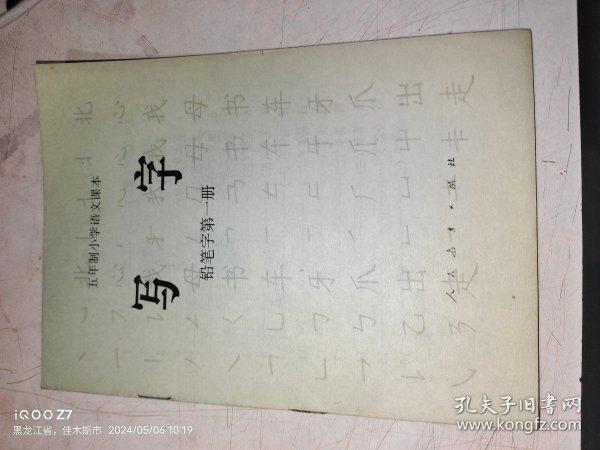 五年制小学语文课本
写字
铅笔字第一册
人民教育出版社
北
心
我
母
书
车
牙
爪
出
走
iQOO Z7
黑龙江省，佳木斯市 2024/05/06 10:19
孔夫子旧书网
www.kongfz.com